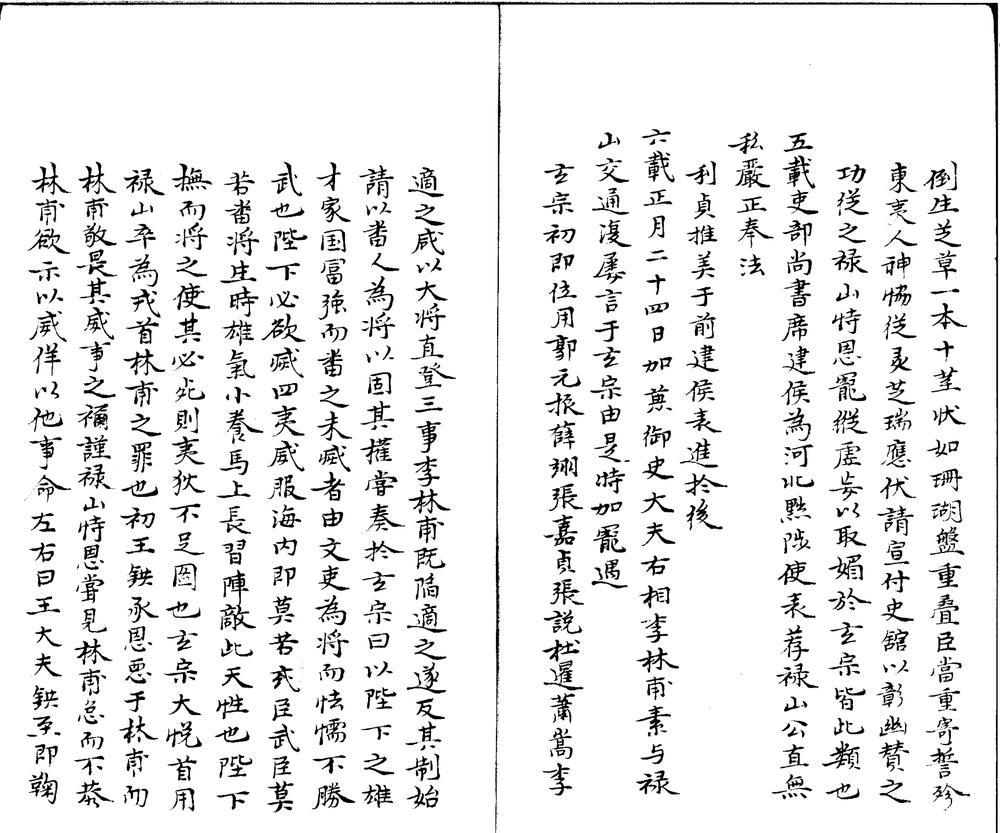 倒生芝草一本十莖状如珊瑚盤重疊臣當重寄誓殄
東夷人神恊従灵芝瑞應伏請宣付史舘以彰幽賛之
功従之禄山恃恩寵縦虚妄以取媚於玄宗皆此類也
五載吏部尚書席建侯為河北黜陟使表荐禄山公直無
私嚴正奉法
利貞推美于前建侯表進於後
六載正月二十四日加兼御史大夫右相李林甫素与禄
山交通復屡言于玄宗由是特加寵遇
玄宗初即位用郭元振薛翊張嘉貞張説杜暹蕭嵩李
適之咸以大将直登三事李林甫既陥適之遂反其制始
請以畨人為将以固其權甞奏於玄宗曰以陛下之雄
才家国冨強而畨之未滅者由文吏為将而怯懦不勝
武也陛下必欲滅四夷威服海内即莫若武臣武臣莫
若畨将生時雄氣小養馬上長習陣敵此天性也陛下
撫而将之使其必死則夷狄不足圖也玄宗大悦首用
禄山卒為戎首林甫之罪也初王鉷承恩悪于林甫而
林甫敬畏其威事之禰謹禄山恃恩甞見林甫怠而不恭
林甫欲示以威佯以他事命左右曰王大夫鉷至即鞠